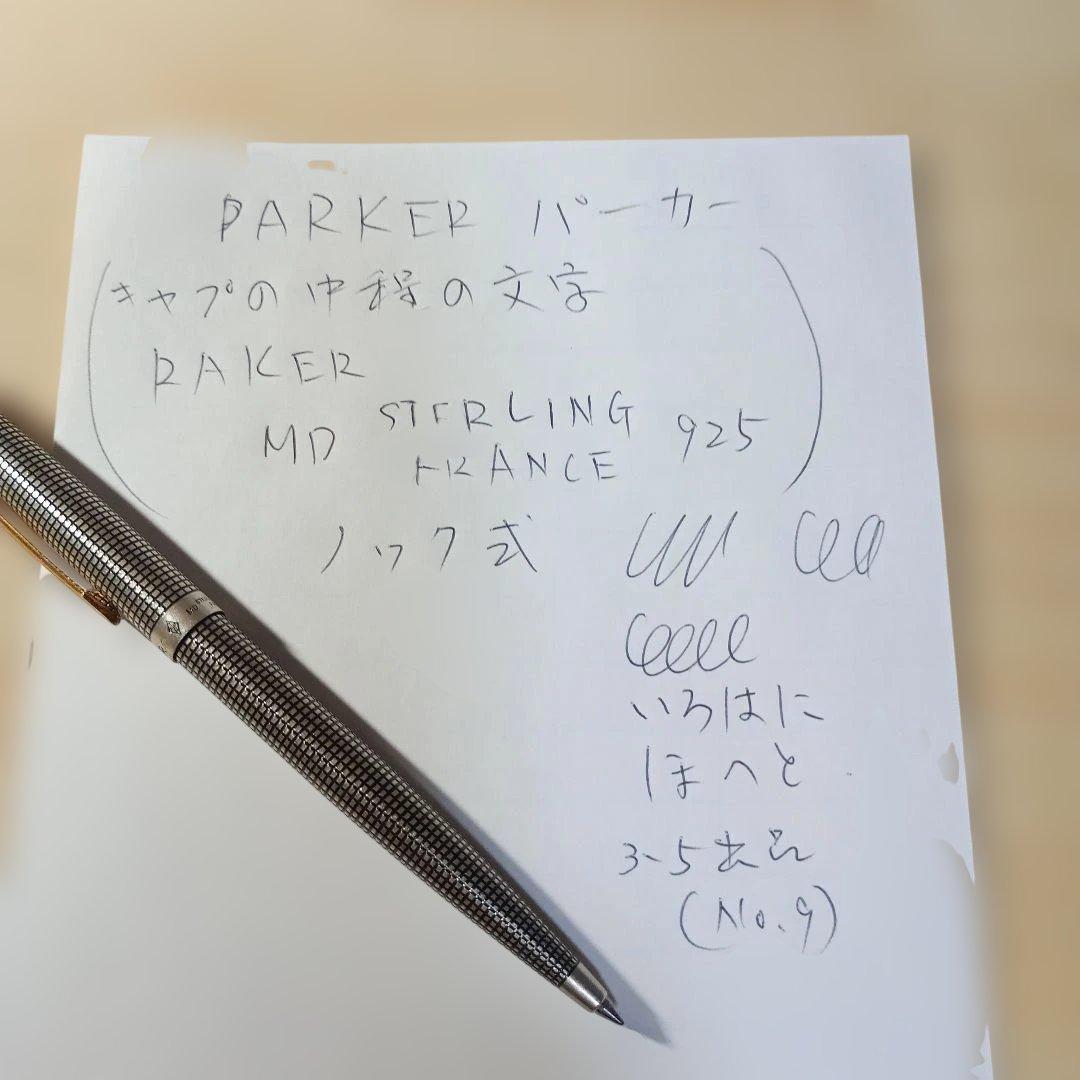 PARKER パーカー
キャプの中程の文字
RAKER
MD STERLING FRANCE 925
ノック式
いろはに
ほへと
3-5出品
(No.9)